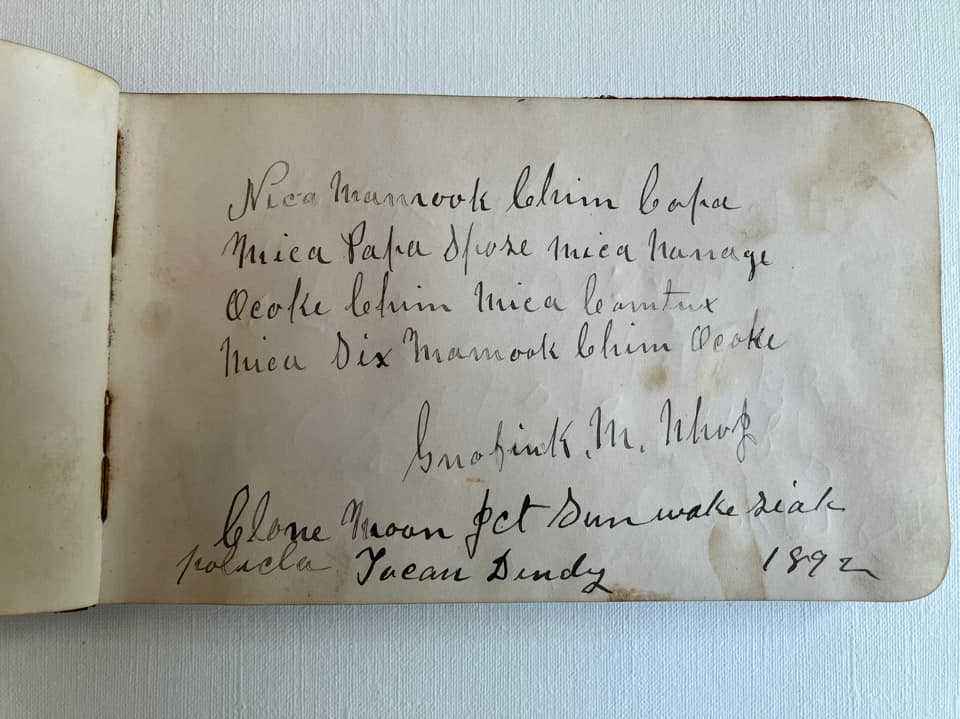 Nica Mamook Chim Copa
Mica Papa Spose mica nanage
Ocoke Chim Mica Comtux
Mica Six Mamook Chim Ocoke
M. Nhoj
Clone Moon Sun wake siak
polacla Tucan Dendy 1892